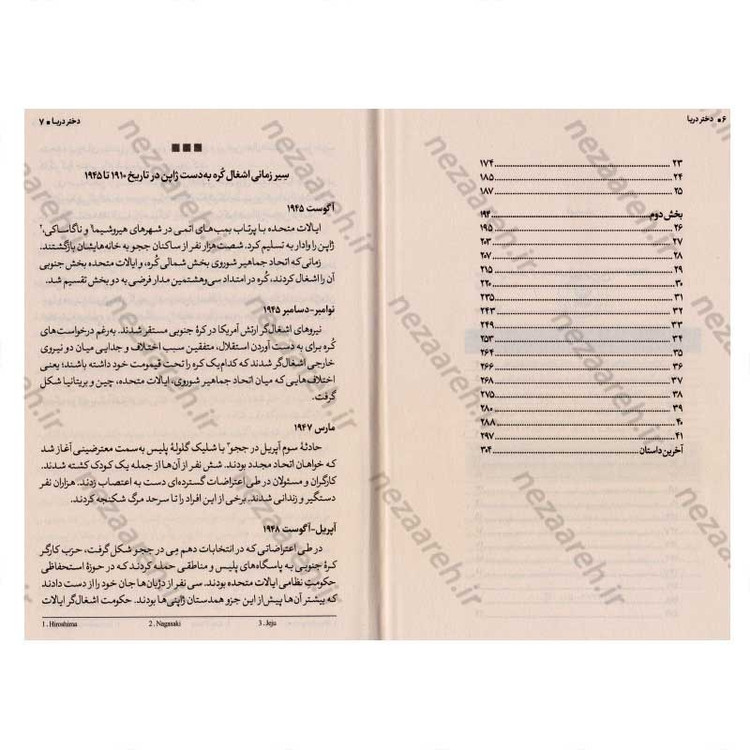 ۶ ■ دختر دریا
۲۳ ........ ۱۷۴
۲۴ ........ ۱۸۵
۲۵ ........ ۱۸۷
بخش دوم ........ ۱۹۳
۲۶ ........ ۱۹۵
۲۷ ........ ۲۰۳
۲۸ ........ ۲۰۷
۲۹ ........ ۲۱۵
۳۰ ........ ۲۲۰
۳۱ ........ ۲۳۵
۳۲ ........ ۲۴۳
۳۳ ........ ۲۴۹
۳۴ ........ ۲۵۳
۳۵ ........ ۲۶۴
۳۶ ........ ۲۶۶
۳۷ ........ ۲۶۸
۳۸ ........ ۲۷۵
۳۹ ........ ۲۸۰
۴۰ ........ ۲۸۸
۴۱ ........ ۲۹۷
آخرین داستان ........ ۳۰۴
دختر دریا ■ ۷
سیر زمانی اشغال کُره به‌دست ژاپن در تاریخ ۱۹۱۰ تا ۱۹۴۵
آگوست ۱۹۴۵
ایالات متحده با پرتاب بمب‌های اتمی در شهرهای هیروشیما۱ و ناگاساکی،۲
ژاپن را وادار به تسلیم کرد. شصت‌هزار نفر از ساکنان ججو به خانه‌هایشان بازگشتند.
زمانی که اتحاد جماهیر شوروی بخش شمالی کُره، و ایالات متحده بخش جنوبی
آن را اشغال کردند، کُره در امتداد سی‌وهشتمین مدار فرضی به دو بخش تقسیم شد.
نوامبر-دسامبر ۱۹۴۵
نیروهای اشغال‌گر ارتش آمریکا در کرهٔ جنوبی مستقر شدند. به‌رغم درخواست‌های
کُره برای به دست آوردن استقلال، متفقین سبب اختلاف و جدایی میان دو نیروی
خارجی اشغال‌گر شدند که کدام‌یک کره را تحت قیمومت خود داشته باشند؛ یعنی
اختلاف‌هایی که میان اتحاد جماهیر شوروی، ایالات متحده، چین و بریتانیا شکل
گرفت.
مارس ۱۹۴۷
حادثهٔ سوم آپریل در ججو۳ با شلیک گلولهٔ پلیس به‌سمت معترضینی آغاز شد
که خواهان اتحاد مجدد بودند. شش نفر از آن‌ها از جمله یک کودک کشته شدند.
کارگران و مسئولان در طی اعتراضات گسترده‌ای دست به اعتصاب زدند. هزاران نفر
دستگیر و زندانی شدند. برخی از این افراد را تا سرحد مرگ شکنجه کردند.
آپریل-آگوست ۱۹۴۸
در طی اعتراضاتی که در انتخابات دهم مِی در ججو شکل گرفت، حزب کارگر
کرهٔ جنوبی به پاسگاه‌های پلیس و مناطقی حمله کردند که در حوزهٔ استحفاظی
حکومت نظامی ایالات متحده بودند. سی نفر از دژبان‌ها جان خود را از دست دادند
که بیشتر آن‌ها پیش از این جزو همدستان ژاپنی‌ها بودند. حکومت اشغال‌گر ایالات
1. Hiroshima 2. Nagasaki 3. Jeju
nezaareh.ir